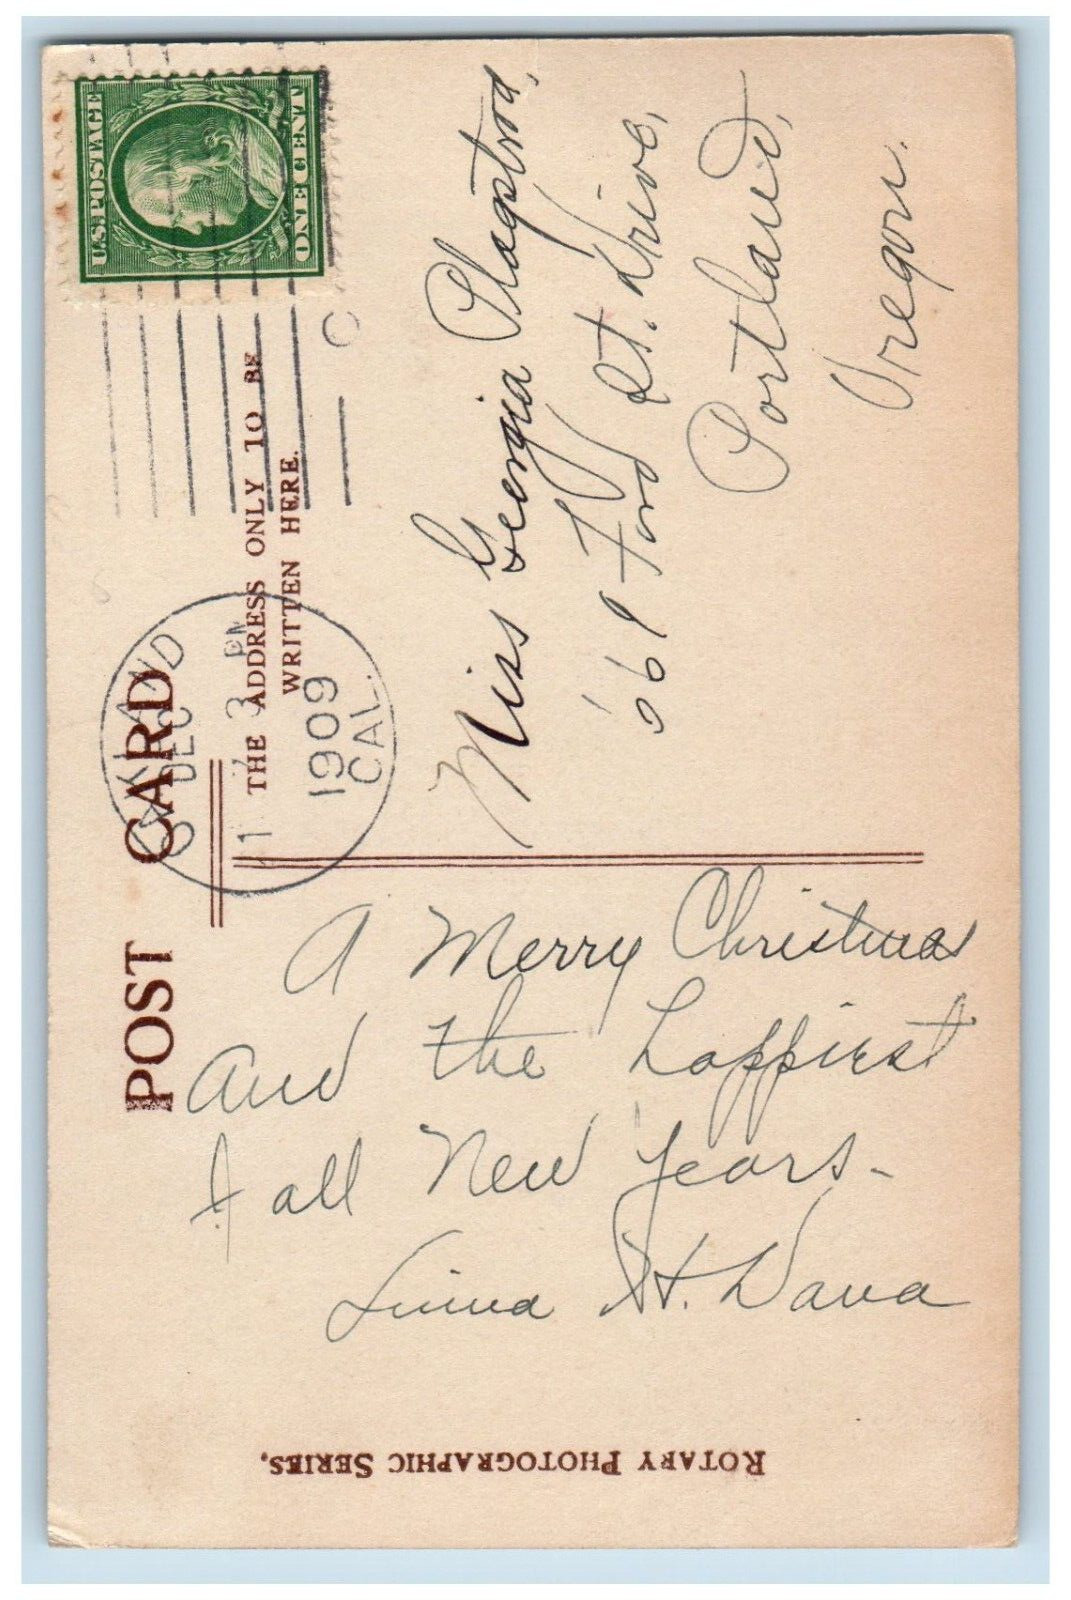 POST CARD
THE ADDRESS ONLY TO BE
WRITTEN HERE.
U.S. POSTAGE
ONE CENT
OAKLAND
DEC
3 PM
1909
CAL.
Miss Georgia
Ford St. Drive,
Portland,
Oregon.
A Merry Christmas
And the happiest
of all New Years-
H. Dana
ROTARY PHOTOGRAPHIC SERIES.